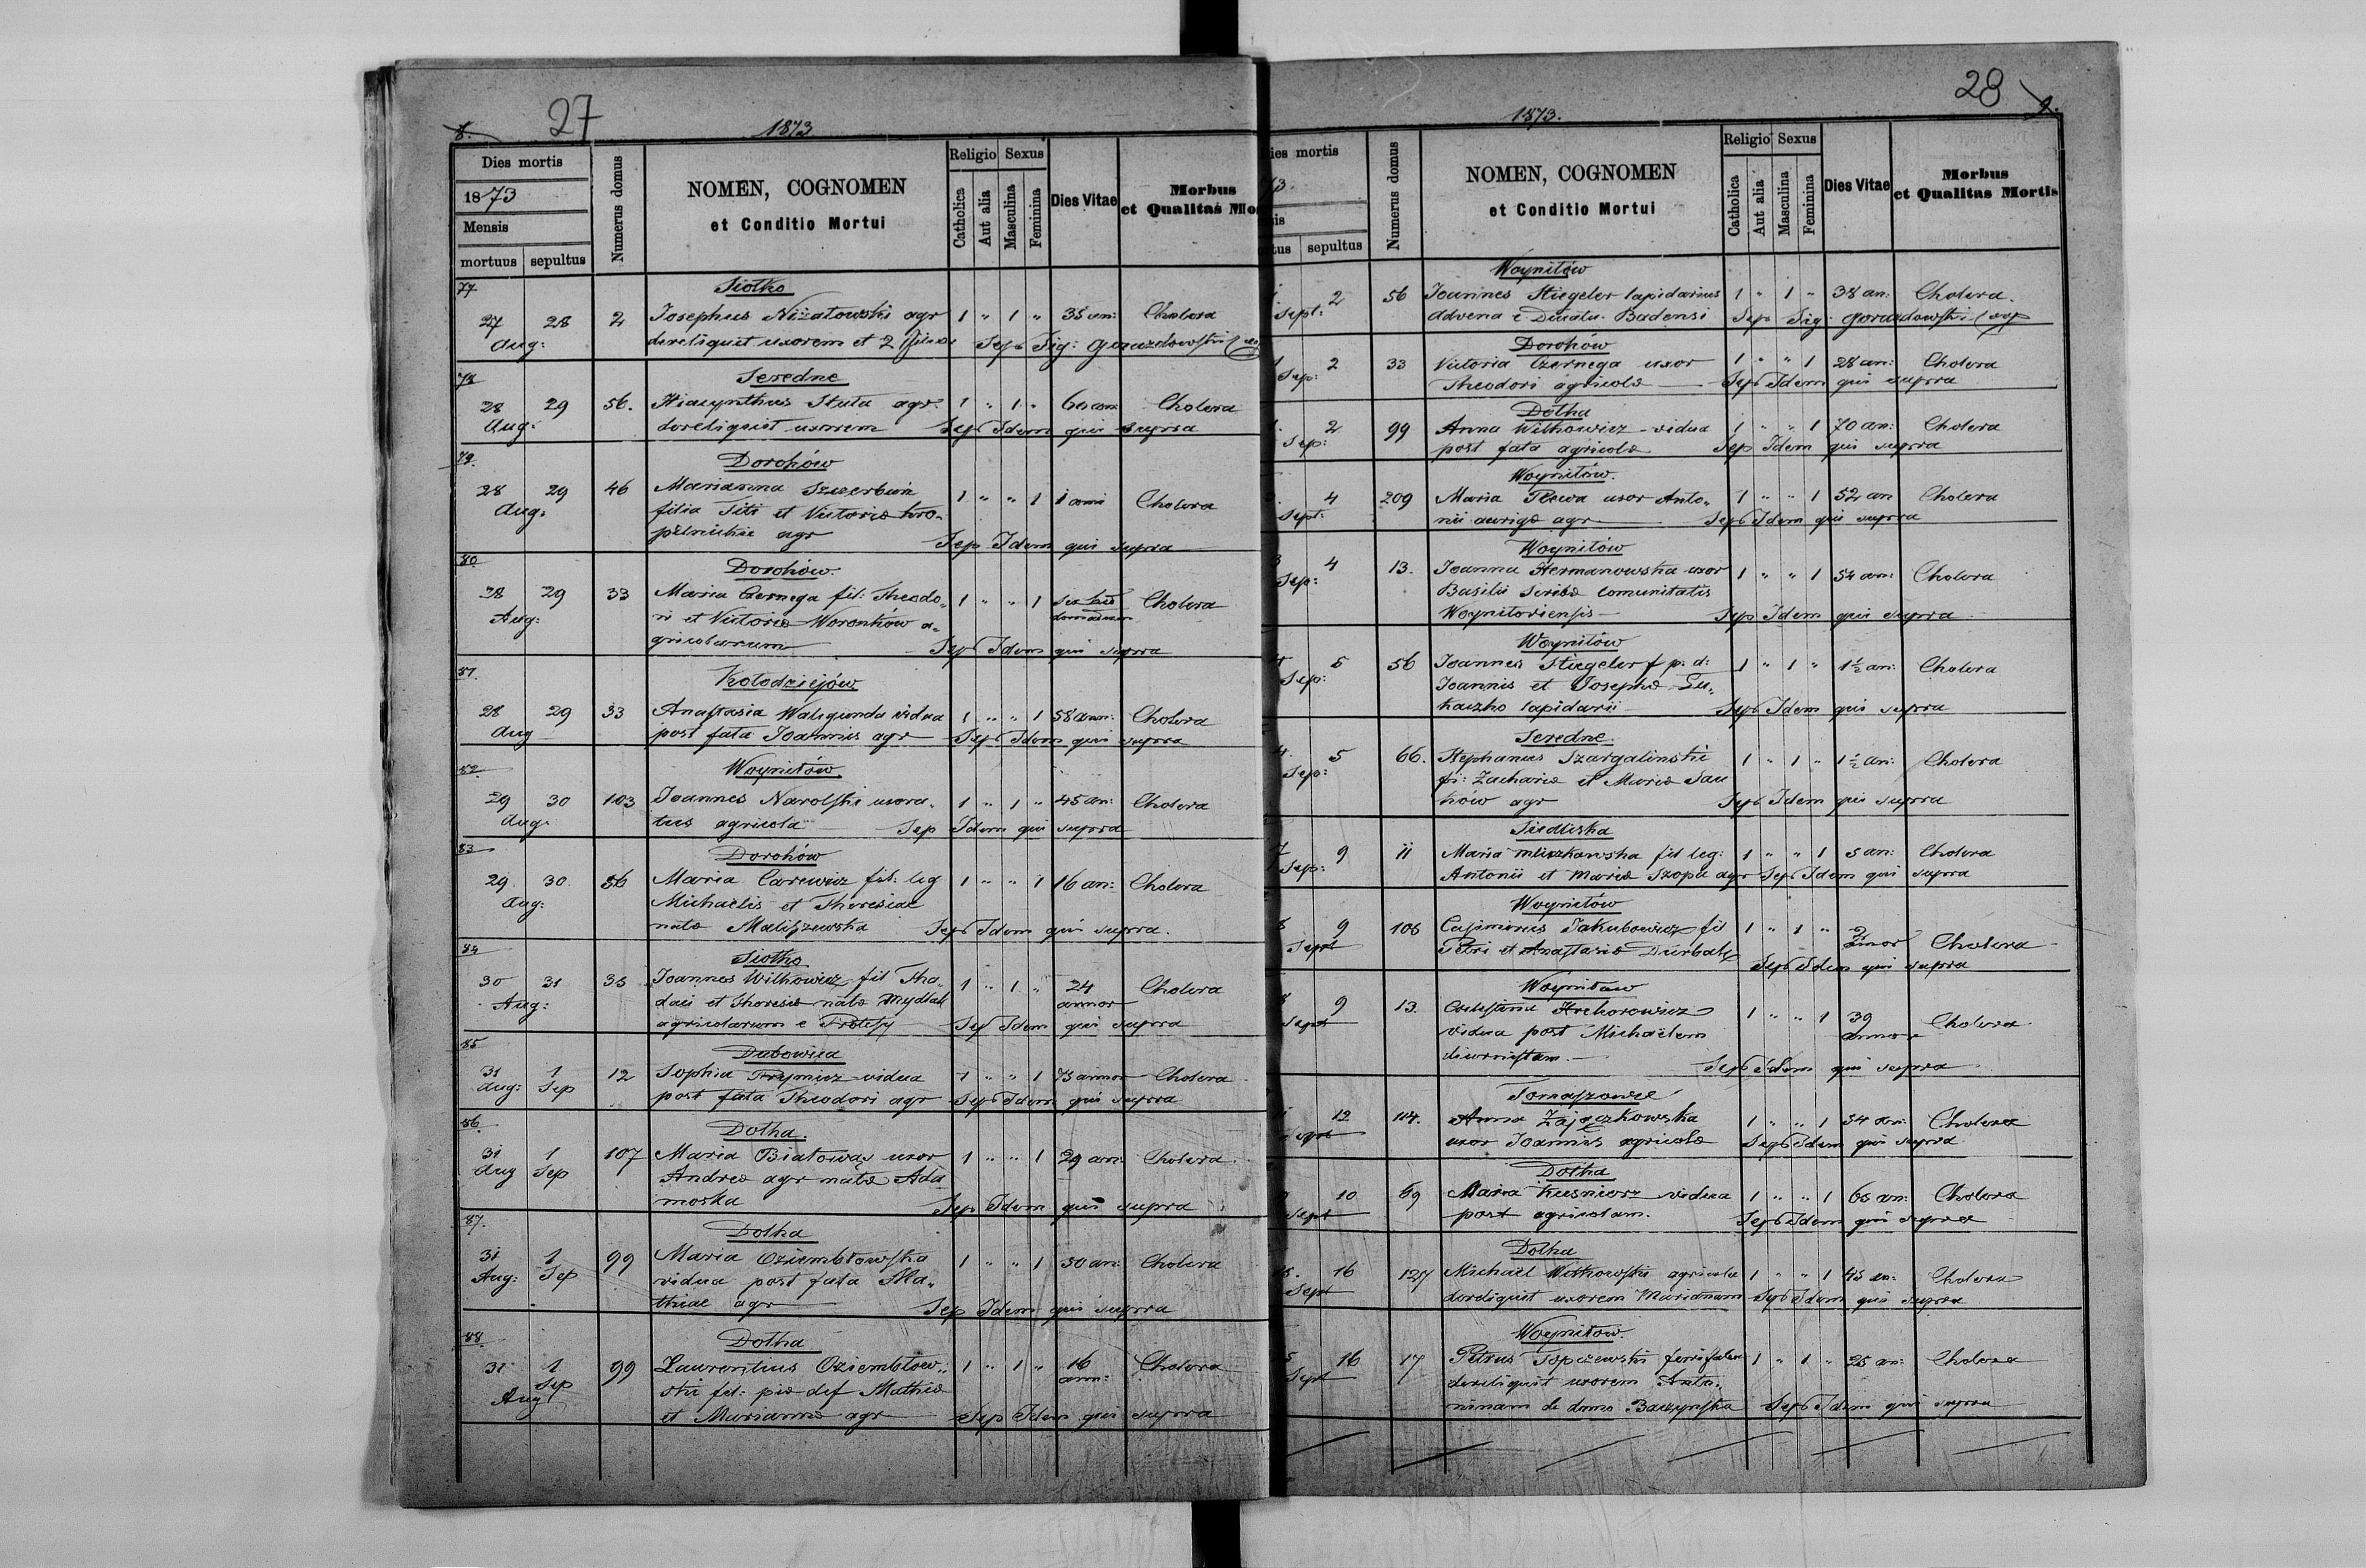 8.
27
1873
Dies mortis
1873
Mensis
mortuus sepultus
Numerus domus
NOMEN, COGNOMEN
et Conditio Mortui
Religio Sexus
Catholica
Aut alia
Masculina
Feminina
Dies Vitae
Morbus
et Qualitas Mor
77
Siolko
27 28 2 Josephus Niżałowski agr 1 " 1 " 35 an: Cholera
Aug: dereliquit uxorem et 2 Sep Sig: Gorazdowski
78
Seredne
28 29 56. Hiacynthus Skuta agr. 1 " 1 " 60 ann Cholera
Aug: dereliquit uxorem Sep Idem qui supra
79.
Dorohów
28 29 46 Marianna 1 " " 1 1 anni Cholera
Aug: filia Titi et Victoriæ Kro„
agr Sep Idem qui supra
80
Dorohów.
28 29 33 Maria Czernega fil: Theodo„ 1 " " 1 Cholera
Aug: ri et Victoriæ Woronków a„
gricolarum Sep Idem qui supra
81.
Kołodziejów
28 29 33 Anastasia Waligunda vidua 1 " " 1 58 ann: Cholera
Aug post fata Joannis agr Sep Idem qui supra
82
Woynitów.
29 30 103 Joannes Narolski uxora„ 1 " 1 " 45 an: Cholera
Aug: tus agricola Sep Idem qui supra
83
Dorohów
29 30 56 Maria Carewicz fil: leg 1 " " 1 16 an: Cholera
Aug: Michaelis et Theresiae
natæ Maliszewska Sep Idem qui supra.
84
Siolko
30 31 35 Joannes Witkowicz fil Tha„ 1 " 1 " 24 Cholera
Aug: daei et Theresiæ natæ Mydlak annor
agricolarum e Sep Idem qui supra
85
Dubowica
31 1 12 Sophia vidua 1 " " 1 75 annor Cholera
Aug: Sep post fata Theodori agr Sep Idem qui supra
86
Dołha.
31 1 107 Maria uxor 1 " " 1 29 an: Cholera
Aug Sep Andreæ agr natæ Ada
moska Sep Idem qui supra
87.
Dołha
31 1 99 Maria Oziembłowska 1 " " 1 50 an: Cholera
Aug: Sep vidua post fata Ma„
thiae agr Sep Idem qui supra
88
Dołha
31 1 99 Laurentius Oziembłow„ 1 " 1 " 16 Cholera
Aug Sep ski fil: piæ def Mathiæ ann:
et Mariannæ agr Sep Idem qui supra
28
9.
1873.
ies mortis
73.
sis
rtuus sepultus
Numerus domus
NOMEN, COGNOMEN
et Conditio Mortui
Religio Sexus
Catholica
Aut alia
Masculina
Feminina
Dies Vitae
Morbus
et Qualitas Mortis
Woynitów
2 56 Joannes Stiegeler lapidarius 1 " 1 " 38 an: Cholera.
Sept: advena e Ducatu Badensi Sep Sig: Gorazdowski
Dorohów
2 33 Victoria Czernega uxor 1 " " 1 28 an: Cholera
Sep: Theodori agricolæ Sep Idem qui supra
Dołha
2 99 Anna Witkowicz vidua 1 " " 1 70 an: Cholera
Sep: post fata agricolæ Sep Idem qui supra
Woynitów.
4 209 Maria Plewa uxor Anto„ 1 " " 1 52 an Cholera
Sept: nii aurigæ agr Sep Idem qui supra
Woynitów
3 4 13. Joanna Hermanowska uxor 1 " " 1 54 an: Cholera
Sep: Basilii scribæ comunitatis
Woynitoviensis Sep Idem qui supra
Woynitów
4 5 56 Joannes Stiegeler f p. d: 1 " 1 " 1½ an: Cholera
Sep: Joannis et Josephæ Łu„
kaszko lapidarii Sep Idem qui supra
Seredne.
4. 5 66. Stephanus Szargaliński 1 " 1 " 1½ an: Cholera
Sep: fi: Zachariæ et Mariæ Sau
ków agr Sep Idem qui supra
Siedliska
7 9 11 Maria Mliczkowska fil leg: 1 " " 1 5 an: Cholera
Sep: Antonii et Mariæ Szopa agr Sep Idem qui supra
Woynitów
8 9 106 Casimirus Jakubowicz fil 1 " 1 " 2 Cholera
Sept Petri et Anastasiæ annor
Sep Idem qui supra
Woynitow
8 9 13. Hrehorowicz 1 " " 1 39 Cholera
Sept vidua post Michaëlem annor
diurnistam. Sep Idem qui supra
Tomaszowce
11 12 114. Anna Zajączkowska 1 " " 1 34 an: Cholera
Sept uxor Joannis agricolæ Sep Idem qui supra
Dołha
10 69 Maria Kusnierz vidua 1 " " 1 65 an: Cholera
Sept post agricolam. Sep Idem qui supra
Dołha
15. 16 127 Michaël Witkowski agricola 1 " " 1 45 an: Cholera
Sept dereliquit uxorem Mariannam Sep Idem qui supra
Woynitow.
5 16 17 Petrus Topczewski 1 " 1 " 25 an: Cholera
Sept dereliquit uxorem Anto„
ninam de domo Baczynska Sep Idem qui supra